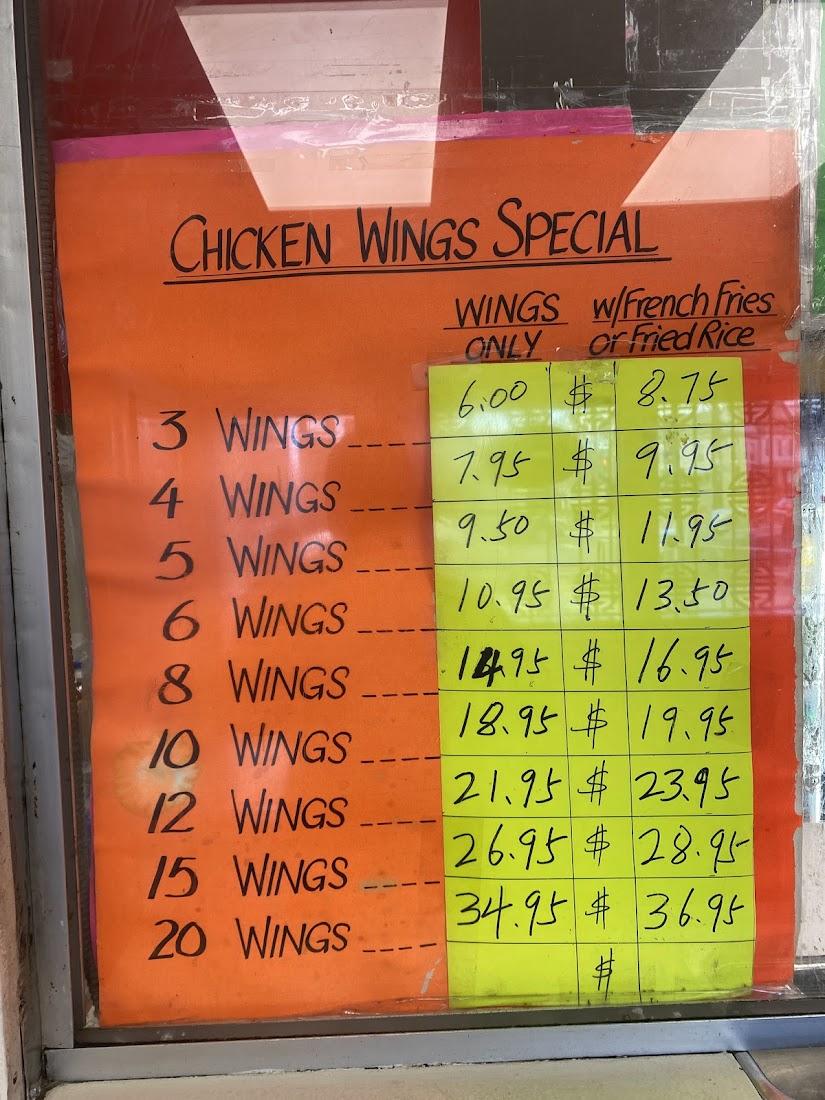 CHICKEN WINGS SPECIAL
WINGS ONLY w/French Fries or Fried Rice
3 WINGS ---- 6.00 $ 8.75
4 WINGS ---- 7.95 $ 9.95
5 WINGS ---- 9.50 $ 11.95
6 WINGS ---- 10.95 $ 13.50
8 WINGS ---- 14.95 $ 16.95
10 WINGS ---- 18.95 $ 19.95
12 WINGS ---- 21.95 $ 23.95
15 WINGS ---- 26.95 $ 28.95
20 WINGS ---- 34.95 $ 36.95
$